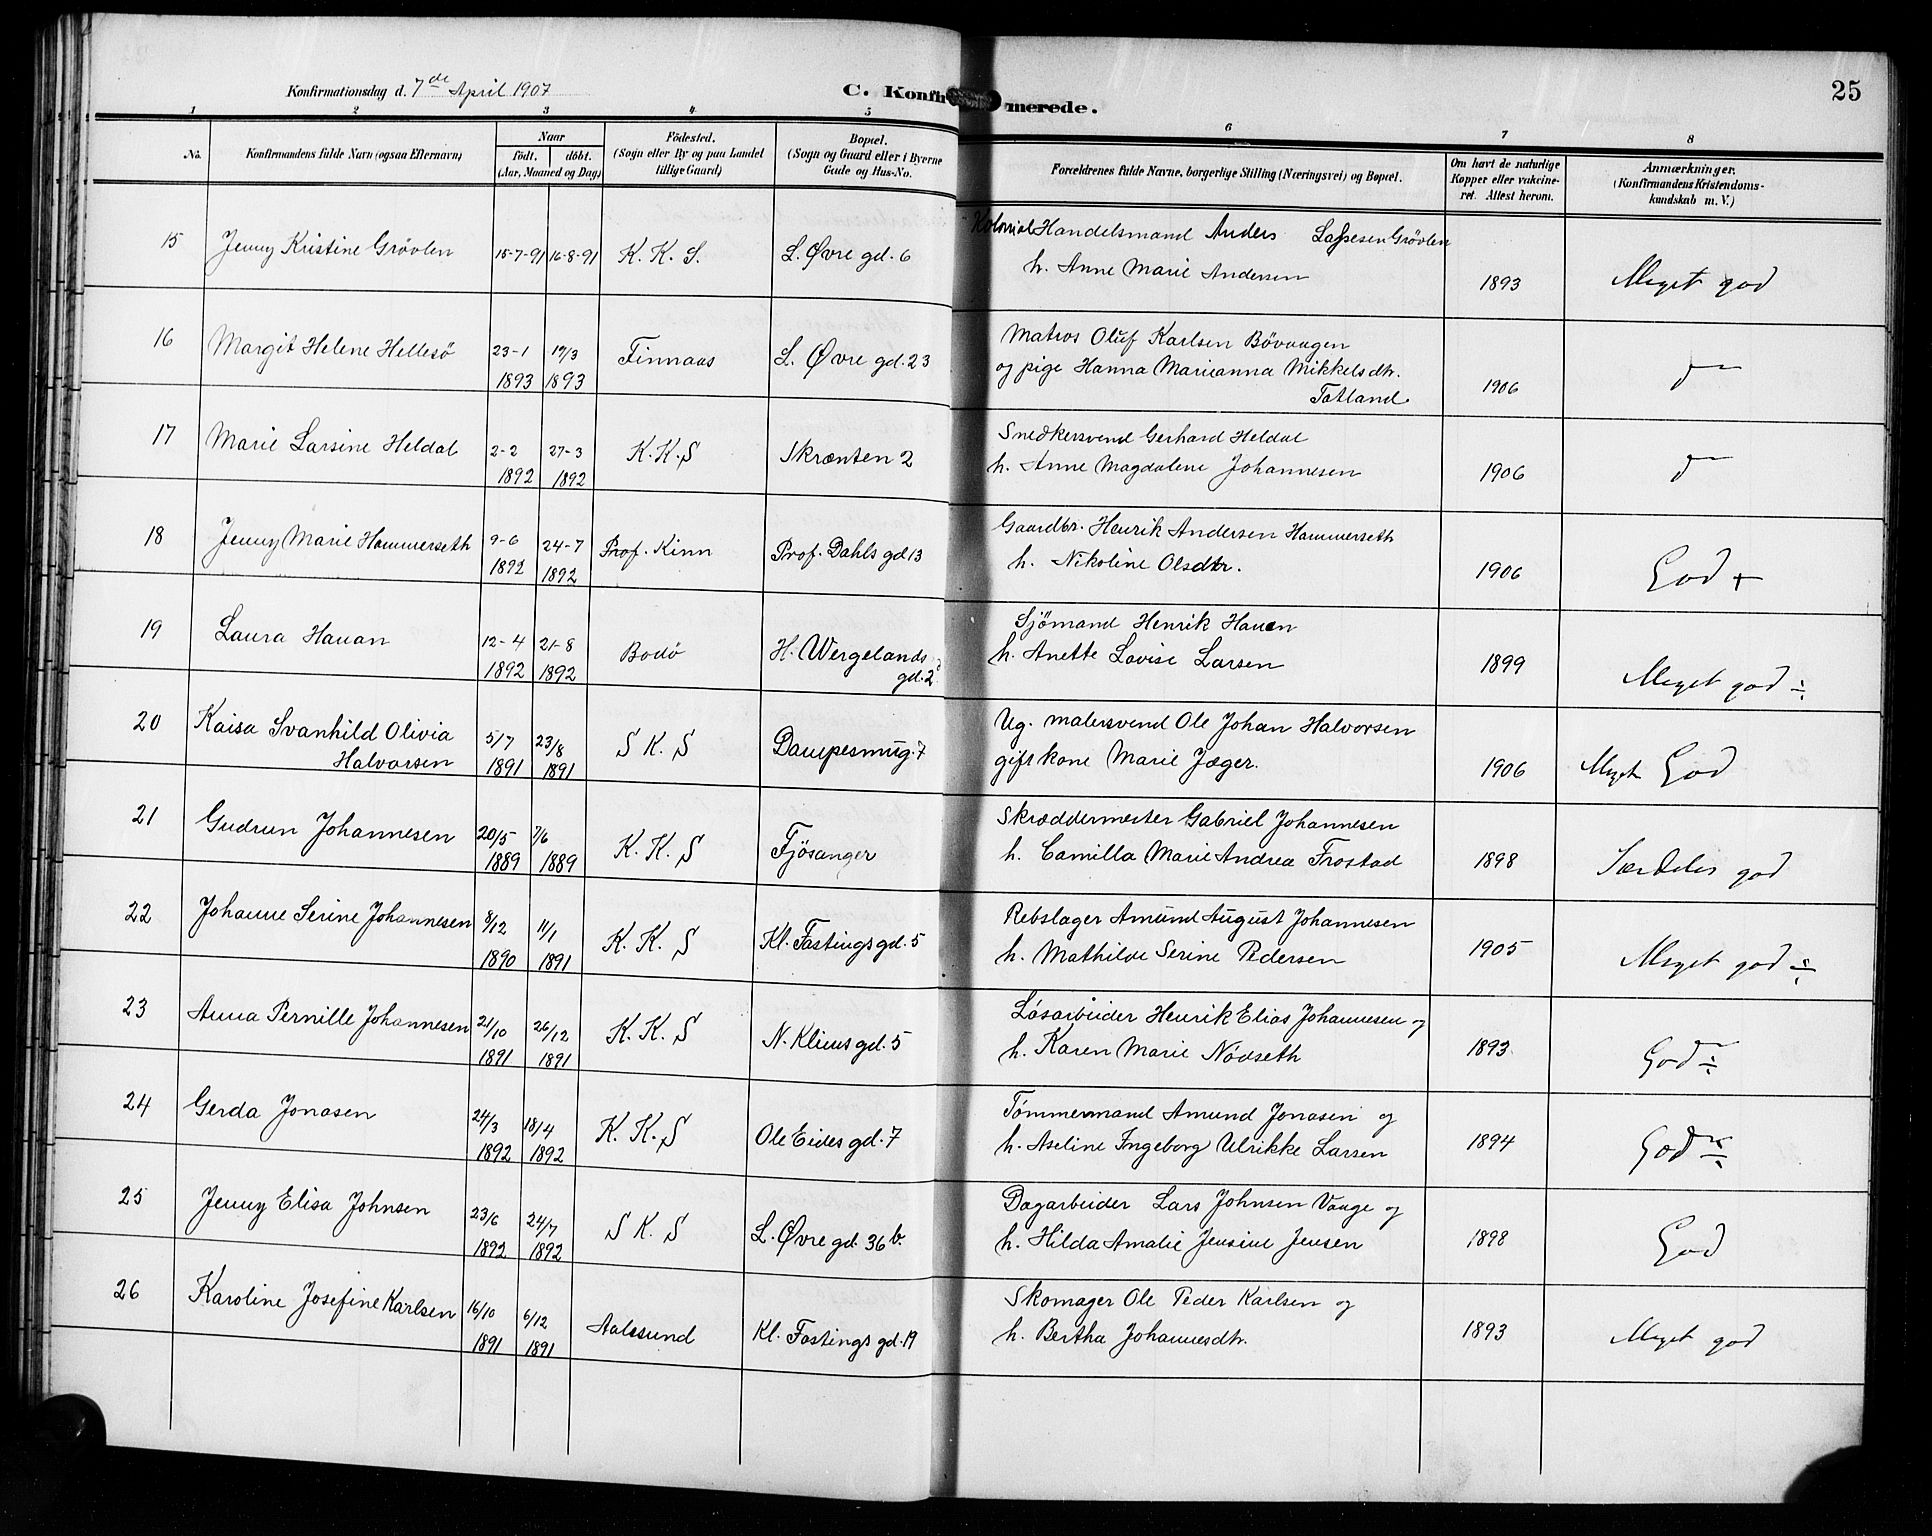 Konfirmationsdag d. 7de April 1907
C. Konfirmerede.
25
1 2 3 4 5 6 7 8
No.
Konfirmandens fulde Navn (ogsaa Efternavn)
Naar
født. døbt.
(Aar, Maaned og Dag)
Fødested.
(Sogn eller By og paa Landet
tillige Gaard)
Bopæl.
(Sogn og Gaard eller i Byerne
Gade og Hus-No.
Forældrenes fulde Navne, borgerlige Stilling (Næringsvei) og Bopæl.
Om havt de naturlige
Kopper eller vakcine-
ret. Attest herom.
Anmærkninger.
(Konfirmandens Kristendoms-
kundskab m. V.)
15 Jenny Kristine Grövlen 15-7-91 16-8-91 K. K. S. L. Øvre gd. 6
Kolonial Handelsmand Anders Lassesen Grövlen
h. Anne Marie Andersen 1893 Meget god
16 Margit Helene Hellesö 23-1 1893 19/3 1893 Finnaas L. Øvre gd. 23
Matros Oluf Karlsen Bövaagen
og pige Hanna Marianna Mikkelsdtr.
Totland 1906
17 Marie Larsine Heldal 2-2 1892 27-3 1892 K.K.S Skrænten 2
Snedkersvend Gerhard Heldal
h. Anne Magdalene Johannesen 1906
18 Jenny Marie Hammerseth 9-6 1892 24-7 1892 Prof. Kinn Prof. Dahls gd 13
Gaardbr. Henrik Andersen Hammerseth
h. Nikoline Olsdtr. 1906 God +
19 Laura Hauan 12-4 1892 21-8 1892 Bodö H. Wergelands
gd. 2
Sjömand Henrik Hauan
h. Anette Lovise Larsen 1899 Meget god ÷
20 Kaisa Svanhild Olivia
Halvorsen 5/7 1891 23/8 1891 S K. S Dampesmug. 7
Ug. malersvend Ole Johan Halvorsen
gift kone Marie Jæger. 1906 Meget God
21 Gudrun Johannesen 20/5 1889 7/6 1889 K. K. S Fjösanger
Skræddermester Gabriel Johannesen
h. Camilla Marie Andrea Frostad 1898 Særdeles god
22 Johanne Serine Johannesen 8/12 1890 11/1 1891 K. K. S Kl. Fastings gd. 5
Rebslager Amund August Johannesen
h. Mathilde Serine Pedersen 1905 Meget god ÷
23 Anna Pernille Johannesen 21/10 1891 26/12 1891 K. K. S N. Klims gd. 5
Løsarbeider Henrik Elias Johannesen og
h. Karen Marie Nödseth 1893 God ÷
24 Gerda Jonasen 24/3 1892 18/4 1892 K. K. S Ole Eides gd. 7
Tömmermand Amund Jonasen og
h. Aseline Ingeborg Ulrikke Larsen 1894 God ÷
25 Jenny Elisa Johnsen 23/6 1892 24/7 1892 S K. S L. Øvre gd. 36 b.
Dagarbeider Lars Johnsen Vaage og
h. Hilda Amalie Jensine Jensen 1898 God
26 Karoline Josefine Karlsen 16/10 1891 6/12 1891 Aalesund Kl. Fastings gd. 19
Skomager Ole Peder Karlsen og
h. Bertha Johannesdtr. 1893 Meget god